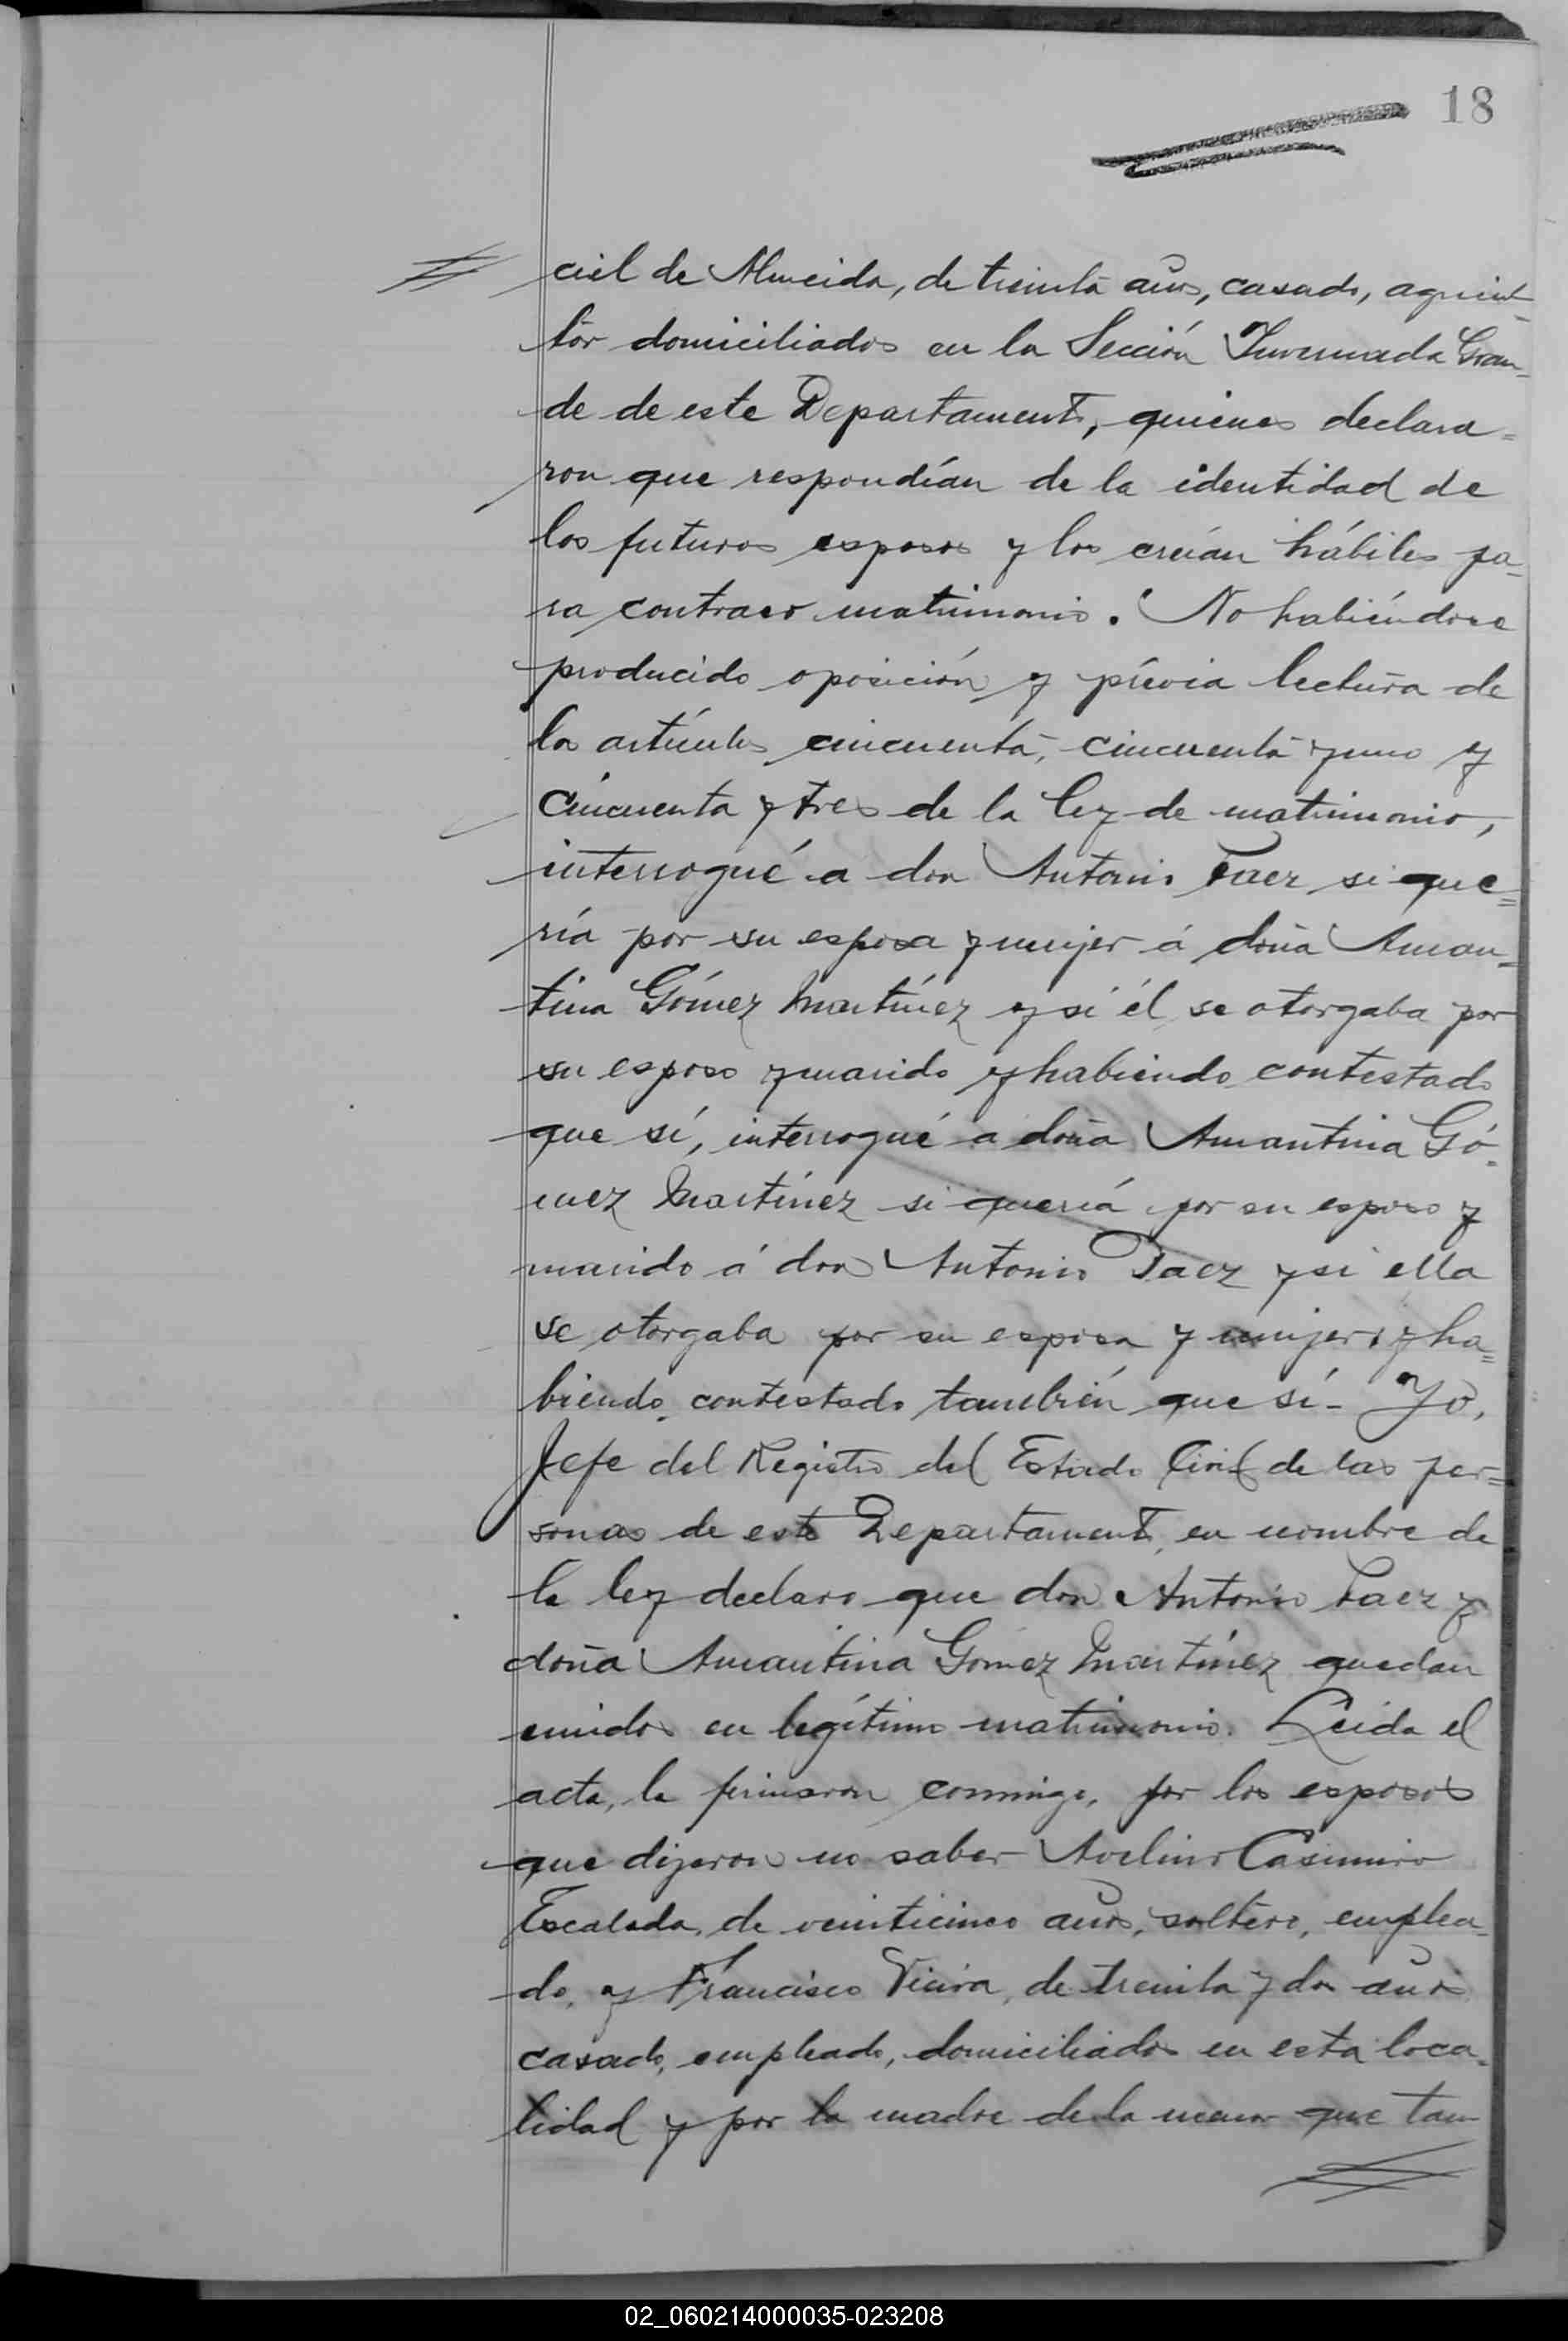 18
ciel de Almeida, de treinta años, casado, agricul-
tor domiciliados en la Sección Invernada Gran-
de de este Departamento, quienes declara=
ron que respondían de la identidad de
los futuros esposos y los creían hábiles pa-
ra contraer matrimonio. No habiéndose
producido oposición y prévia lectura de
los artículos cincuenta, cincuenta y uno y
cincuenta y tres de la ley de matrimonio,
interrogué a don Antonio Paez si que=
ría por su esposa y mujer á doña Aman=
tina Gómez Martínez y si él se otorgaba por
su esposo y marido y habiendo contestado
que sí, interrogué a doña Amantina Gó=
mez Martínez si quería por su esposo y
marido á don Antonio Paez y si ella
se otorgaba por su esposa y mujer y ha=
biendo contestado también que sí - Yo,
Jefe del Registro del Estado Civil de las per=
sonas de este Departamento, en nombre de
la ley declaro que don Antonio Paez y
doña Amantina Gómez Martínez quedan
unidos en legítimo matrimonio. Leida el
acta, la firmaron conmigo, por los esposos
que dijeron no saber Avelino Casimiro
Escalada, de veinticinco años, soltero, emplea-
do, y Francisco Vieira, de treinta y dos años
casado, empleado, domiciliados en esta loca-
lidad y por la madre de la menor que tam
02_060214000035-023208